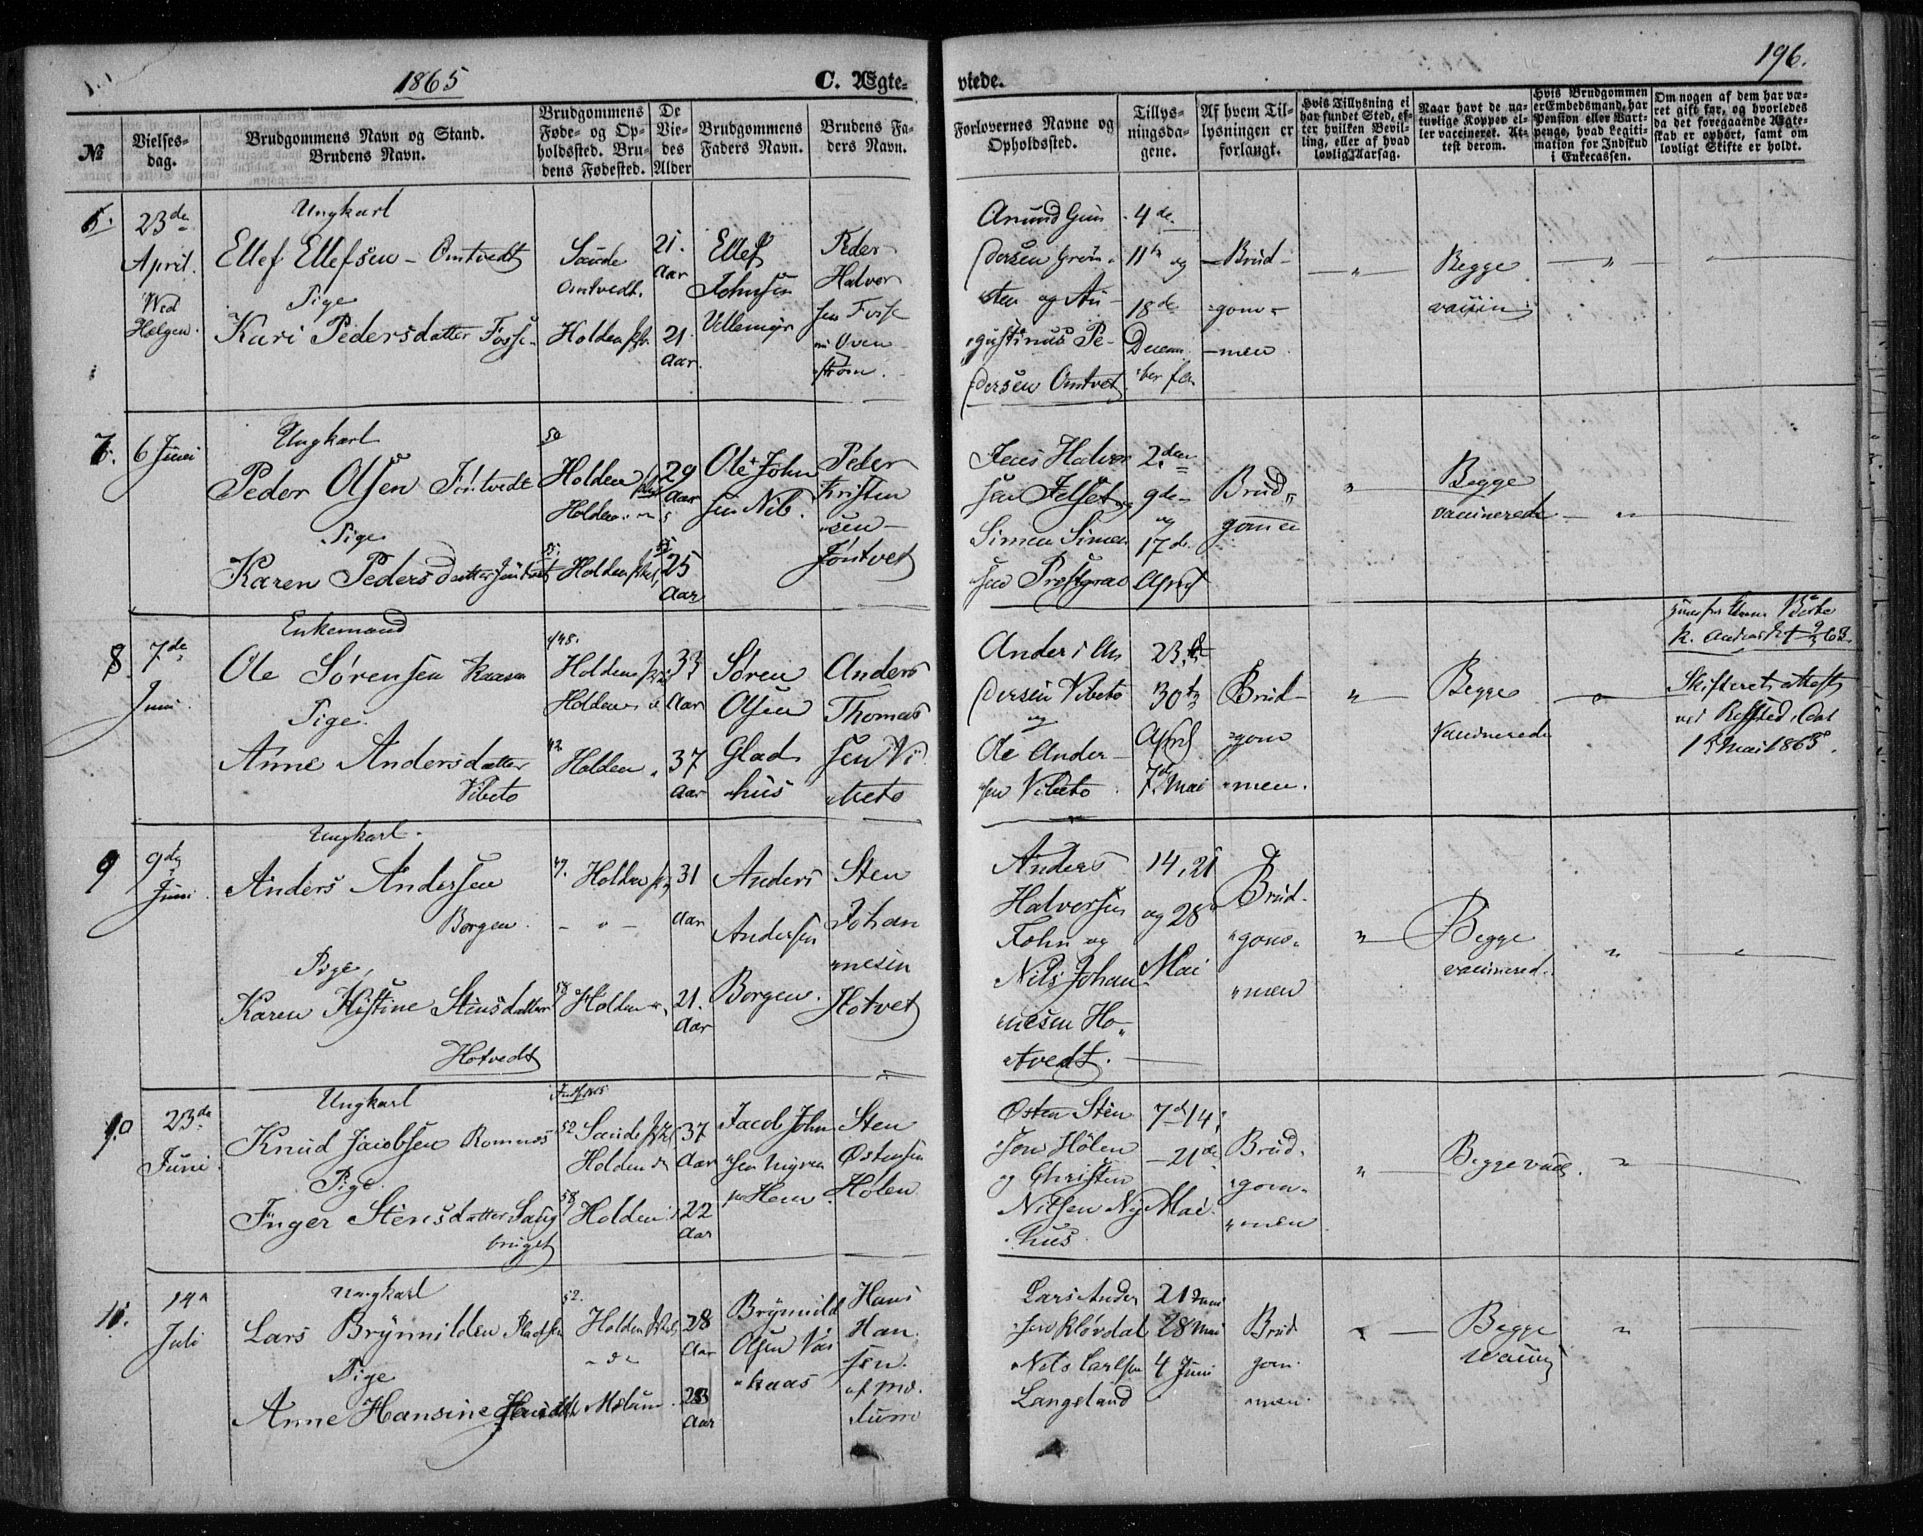 1865
C. Ægte-
viede.
196.
№
Vielses-
dag.
Brudgommens Navn og Stand.
Brudens Navn.
Brudgommens
Føde- og Op-
holdssted. Bru-
dens Fødested.
De
Vie-
des
Alder
Brudgommens
Faders Navn.
Brudens Fa-
ders Navn.
Forlovernes Navne og
Opholdssted.
Tillys-
ningsda-
gene.
Af hvem Til-
lysningen er
forlangt.
Hvis Tillysning ei
har fundet Sted, ef-
ter hvilken Bevil-
ling, eller af hvad
lovlig Aarsag.
Naar havt de na-
turlige Kopper el-
ler vaccineret. At-
test derom.
Hvis Brudgommen
er Embedsmand, har
Pension eller Vart-
penge, hvad Legiti-
mation for Indskud
i Enkecassen.
Om nogen af dem har væ-
ret gift før, og hvorledes
da det foregaaende Ægte-
skab er ophørt, samt om
lovligt Skifte er holdt.
6.
23de
April.
Wed
Helgen.
Ungkarl
Ellef Ellefsen - Omtvedt
Pige
Kari Pedersdatter Fosse
Saude
Omtvedt.
Holden
21.
Aar
21
Aar.
Ellef
Johnsen
Ullemyr
Peder
Halvor
sen Fosse
Oven
strøm.
Anund Gun
dersen Grøn
sten og Au-
gustinus Pe-
dersen Omtvet
4de
11te og
18de
Decem
ber
Brud-
gom-
men
"
Begge
vaccin
"
7.
6 Juni
Ungkarl
Peder Olsen Jøntvedt
Pige
Karen Pedersdatter Jøntvedt
50
Holden
Holden
Holden
29
Aar
25
Aar
Ole John
sen Nib.
Peder
Kristen
sen
Jøntvet
Jens Halvor
sen
Simen Simen
sen
2den
9de
og
17de
April
Brud
gomen
"
Begge
vaccinerede
"
8.
7de
Juni.
Enkemand
Ole Sørensen Kaasa
Pige.
Anne Andersdatter
Vibeto
Holden
Holden
42
Holden
33
Aar
37
Aar
Søren
Olsen
Glad
hus
Anders
Thomas
sen Vi
beto
Anders An
dersen Vibeto
og
Ole Ander
sen Vibeto
23de
30te
April
7de Mai
Brud
gom
men.
"
Begge
Vaccinerede
"
Skifterets Attest
1 Mai 1865.
9
9de
Juni.
Ungkarl.
Anders Andersen
Borgen.
Pige,
Karen Kistine Stensdatter
Hotvedt
Holden
- " -
58
Holden
31
Aar
21.
Aar
Anders
Andersen
Borgen.
Sten
Johan
nesen
Hotvet
Anders
Halversen
Tohn og
Nils Johan
nesen Ho-
tvedt.
14, 21
og 28
Mai
Brud-
gom
men
"
Begge
vaccinered.
"
10
23de
Juni.
Ungkarl
Knud Jacobsen Romnes
Pige
Inger Stensdatter Saug
bruget
52.
Saude
Holden
58
Holden
37
Aar
22
Aar
Jacob John
sen
Sten
Østensen
Holen
Østen Sten
sen Holen
og Christen
Nilsen Ny
hus
7de 14,
21de
Mai
Brud-
gom-
men
"
Begge vacc.
"
11.
14
Juli
Ungkarl
Lars Brynnildsen
Pige
Anne Hansine Hansdtr
52.
Holden
Melum
28
Aar
23
Aar
Brynnild
Olsen Vas
kaas
Hans
Han
sen.
af Me
lum
Lars Ander
sen Kløvdal
Nils Carlsen
Langeland
21
28 Mai
4 Juni
Brud
gom
men
"
Begge
vaccin
"